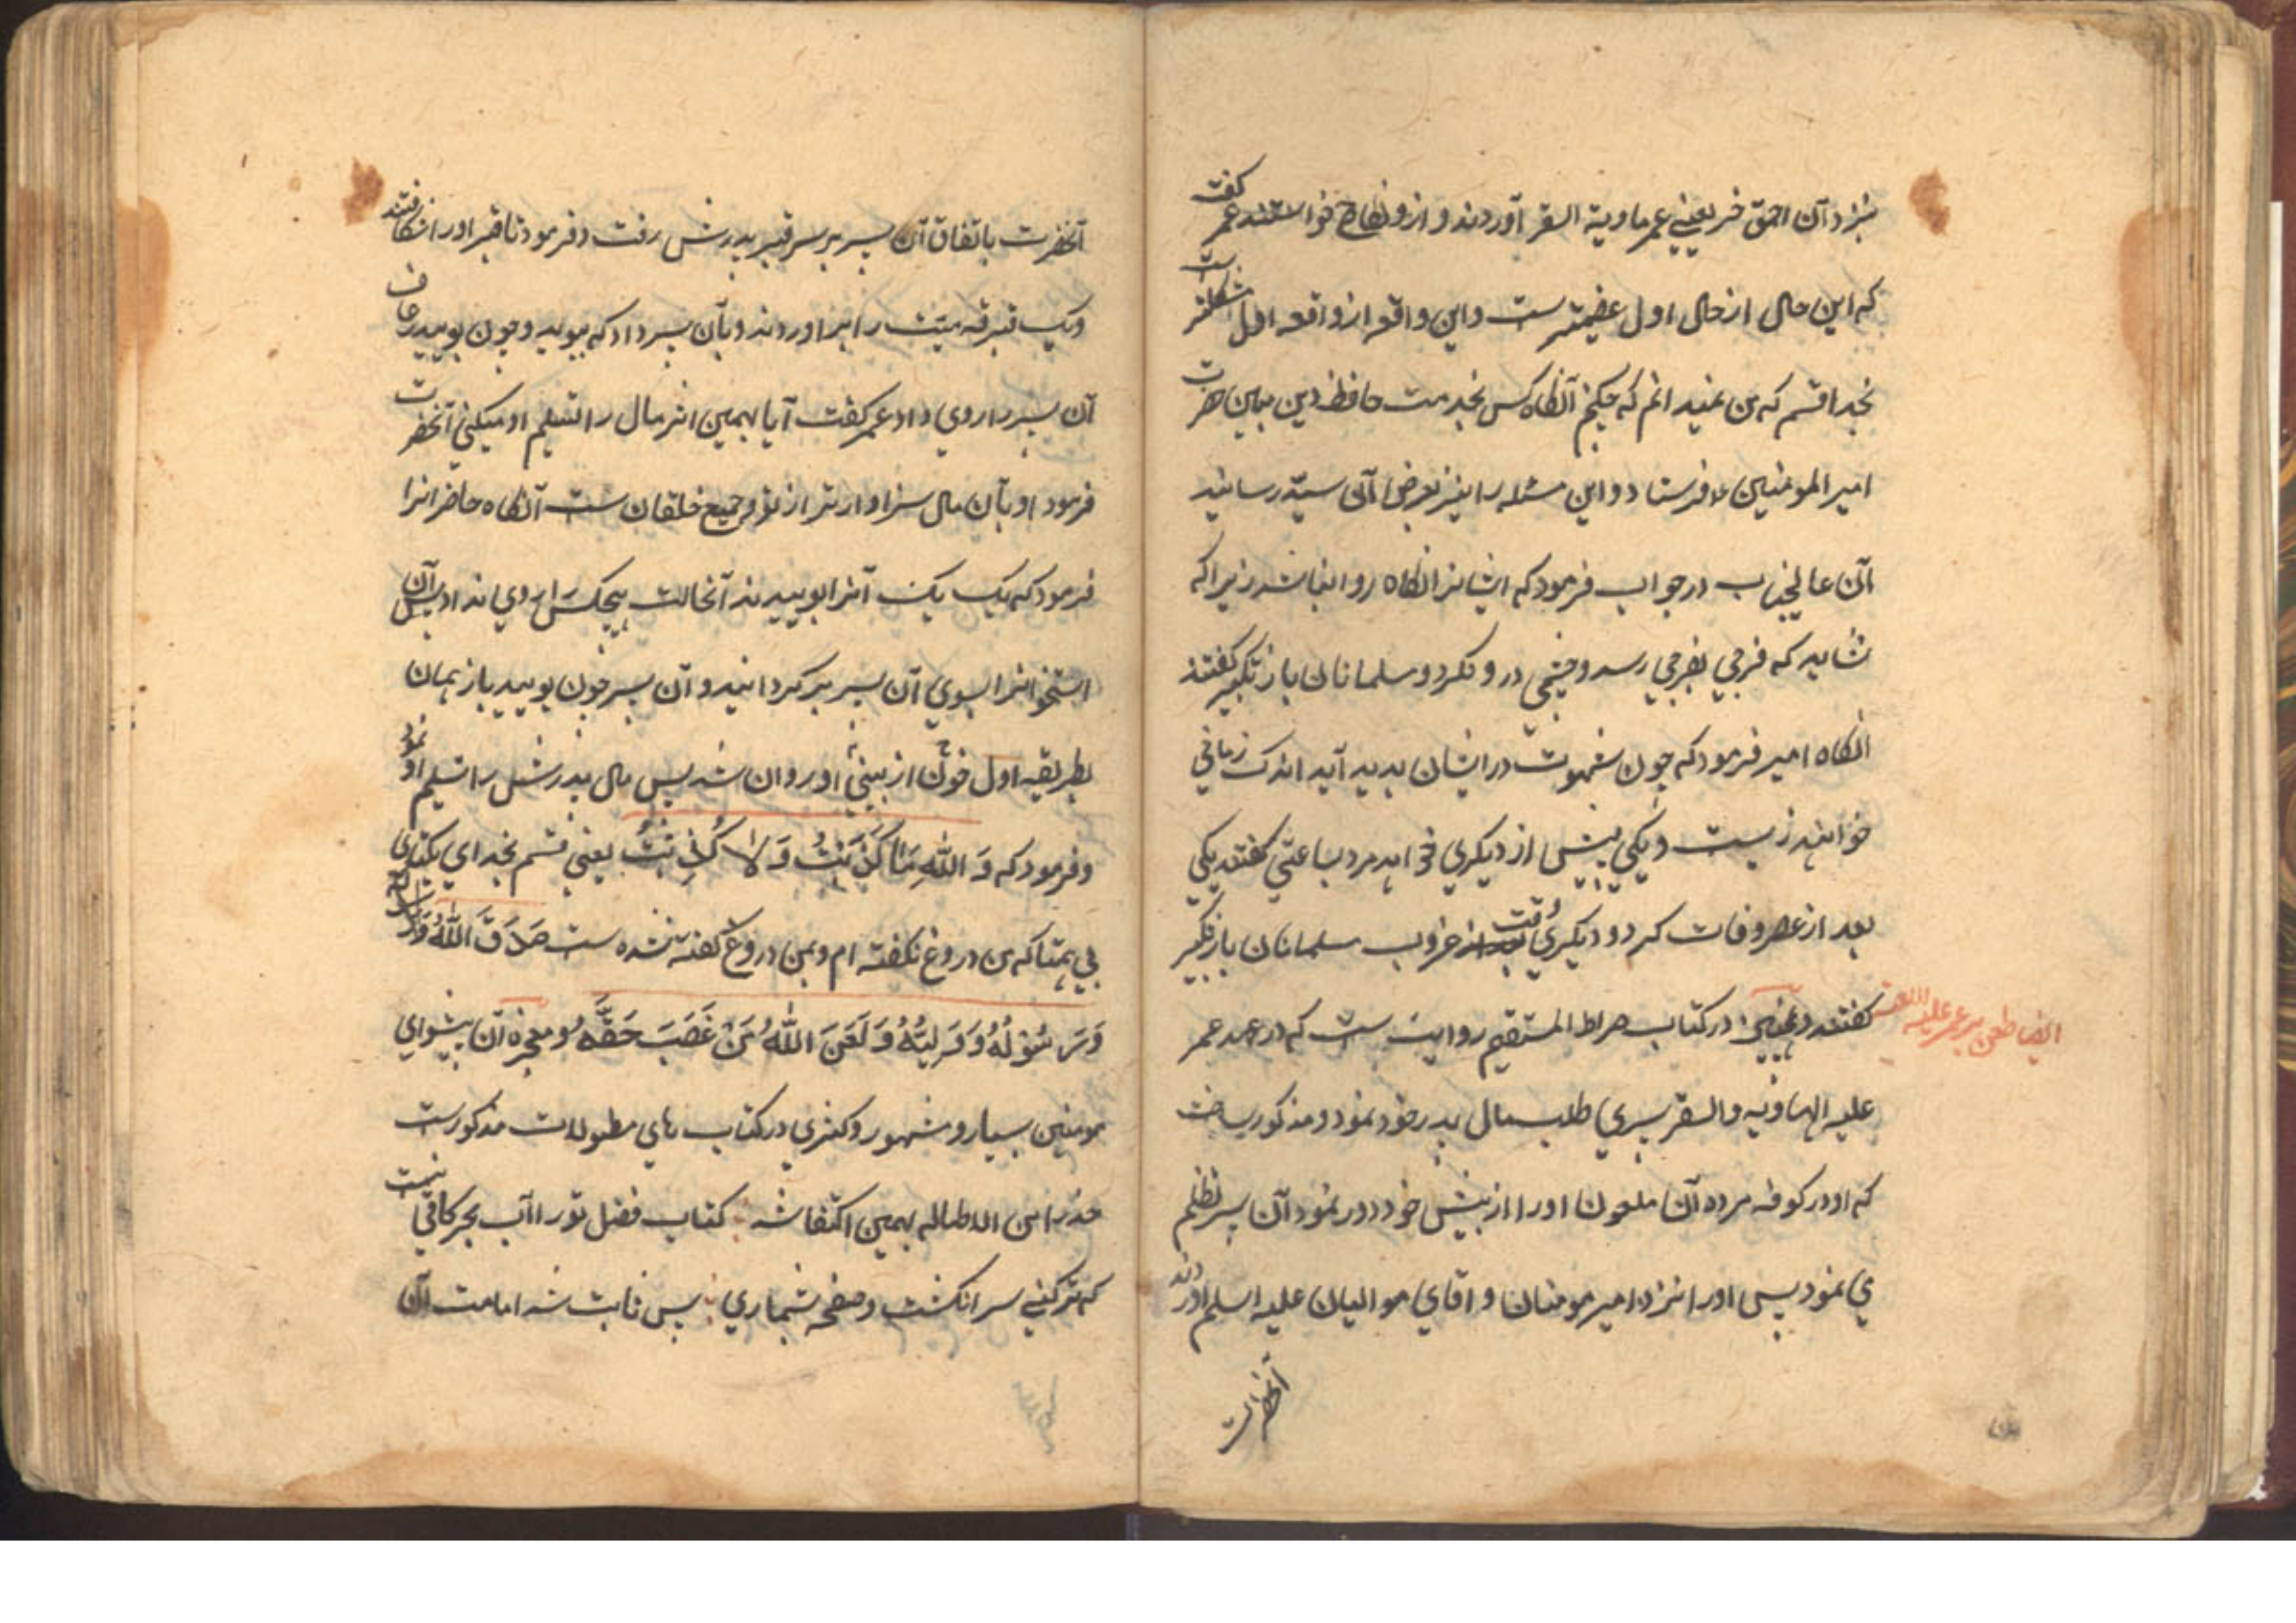 نبزد آن احمق خر یعنی عمر هاویة السقر آوردند و ازو نکاح خواستند عمر کفت
که این حال از حال اول عضیمتر ست و این واقعه از واقعه اول مشکلتر ست
بخدا قسم که من نمیدانم که چکنم آنکاه کس بخدمت حافظ دین مبین حضرت
امیر المومنین فرستاد و این مسئله را نیز بعرض آن سید رسانید
آن عالیجناب در جواب فرمود که ایشانرا نکاه روا نباشد زیرا که
شاید که فرجی بفرجی رسد و چشمی درو نکرد و مسلمانان باز تکبیر کفتند
انکاه امیر فرمود که چون شهوت در ایشان پدید آید اندک زمانی
خواهند زیست و یکی پیش از دیکری خواهد مرد بساعتی کفتند یکی
بعد از عصر وفات کرد و دیکری وقت غروب مسلمانان باز تکبیر
کفتند در کتاب صراط المستقیم روایت ست که در عهد عمر
ایضا طعن بر عمر علیه اللعنة
علیه الهاویه والسقر پسری طلب مال پدر خود نمود و مذکور ساخت
که او در کوفه مرده آن ملعون او را از پیش خود دور نمود آن پسر تظلم
می نمود پس او را نزد امیر مومنان و اقای موالیان علیه اسلم اوردند
آنحضرت
آنحضرت باتفاق آن پسر بر سر قبر پدرش رفت و فرمود تا قبر او را شکافتند
و یک قبرقه میّت را بر اوردند و بآن پسر داد که ببوید و چون بویید رعاف
آن پسر را روی داد عمر کفت آیا بهمین اثر مال را تسلیم او میکنی آنحضرت
فرمود او بآن مال سزاوارتر از تو و جمیع خلقان ست آنکاه حاضرانرا
فرمود که یک یک آنرا بوییدند آنحالت هیچکس را روی نداد پس آن
استخوانرا بسوی آن پسر بر کردانید و آن پسر چون بویید باز همان
بطریقه اول خون از بینی او روان شد پس مال پدرش را تسلیم او نمود
و فرمود که وَ اللّهِ مَا کَذَبتُ وَ لا کُذِبتُ یعنی قسم بخدای یکتای
بی همتا که من دروغ نکفته ام و بمن دروغ کفته نشده ست صَدَقَ اللّهُ
وَ رَسُولُهُ وَ وَلِیُّهُ وَ لَعَنَ اللّهُ مَنْ غَصَبَ حَقَّهُ و معجزه آن پیشوای
مومنین بسیار و مشهور و کثری در کتاب های مطولات مذکورست
حذرا من الاطاله بهمین اکتفا شد کتاب فضل تو را آب بحر کافی نیست
که تر کنی سر انکشت و صفحه شماری پس ثابت شد امامت آن